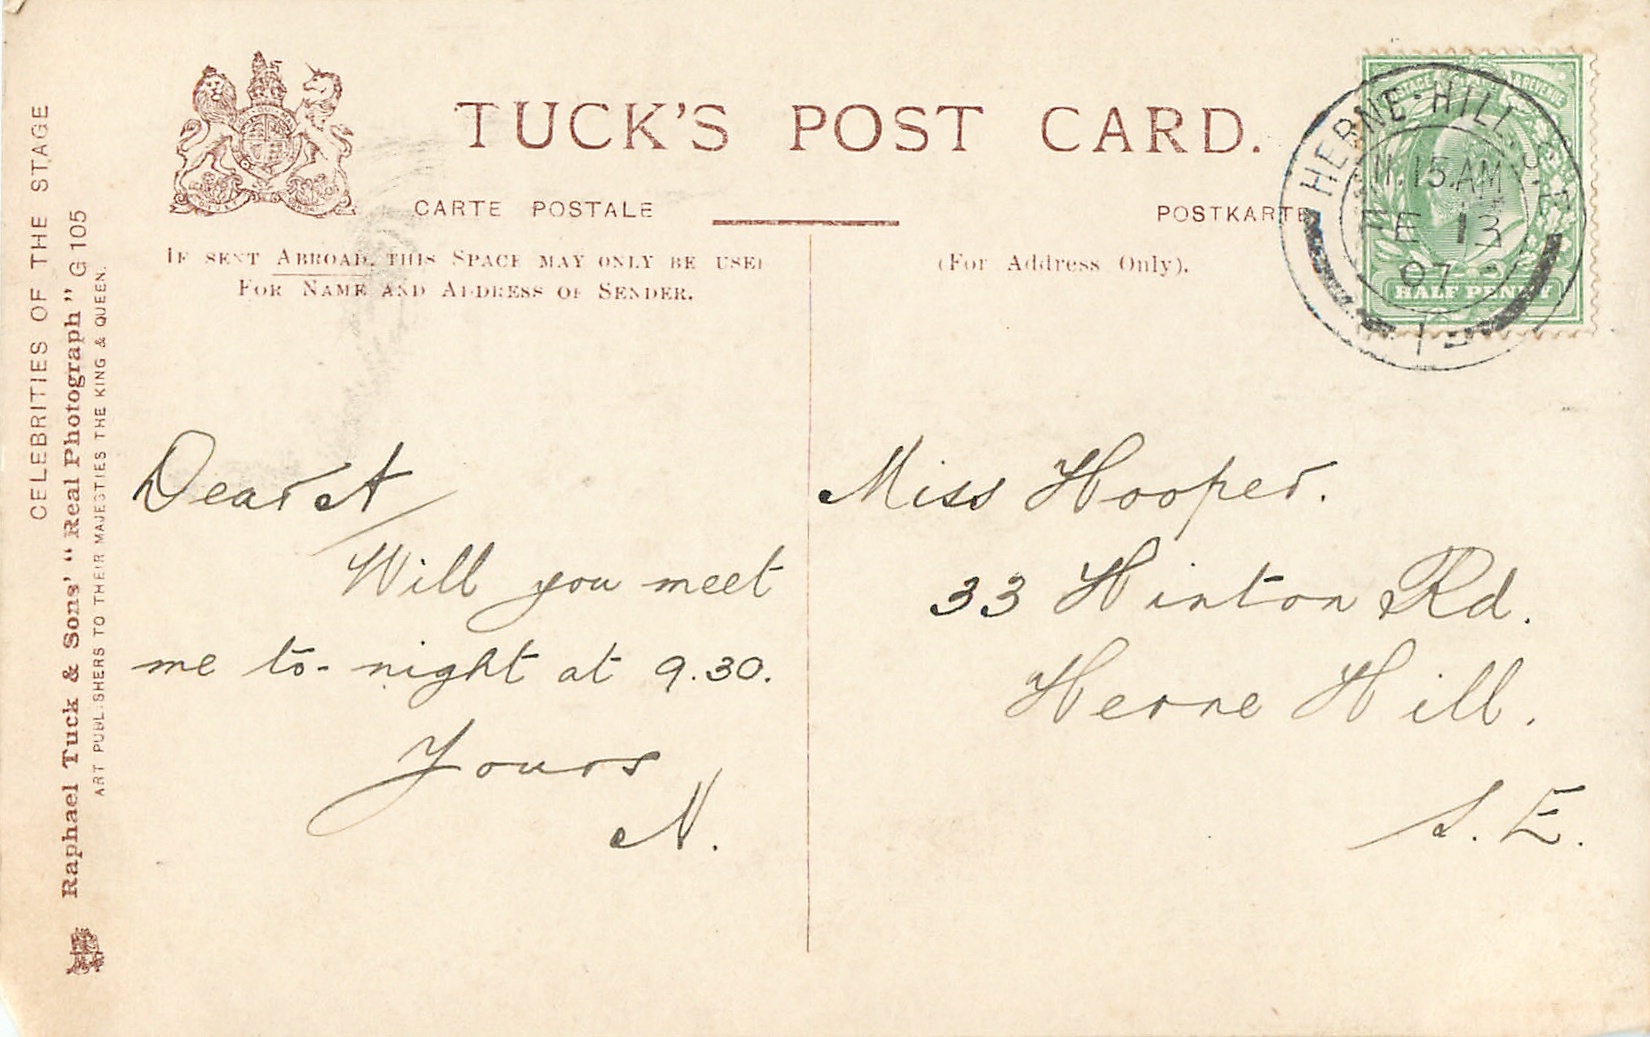 TUCK'S POST CARD.
CARTE POSTALE
POSTKARTE
IF SENT ABROAD, THIS SPACE MAY ONLY BE USED
FOR NAME AND ADDRESS OF SENDER.
(For Address Only).
HERNE-HILL. S.E
11.15 AM
FE 13
07
HALF PENNY
POSTAGE & REVENUE
CELEBRITIES OF THE STAGE
Raphael Tuck & Sons' "Real Photograph" G 105
ART PUBLISHERS TO THEIR MAJESTIES THE KING & QUEEN.
Dear A
Will you meet
me to-night at 9.30.
Yours
N.
Miss Hooper.
33 Hinton Rd.
Herne Hill.
S. E.